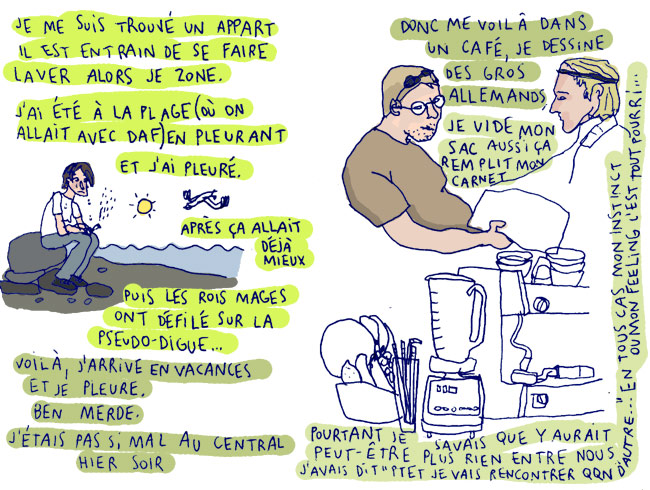 JE ME SUIS TROUVÉ UN APPART
IL EST ENTRAIN DE SE FAIRE
LAVER ALORS JE ZONE.
J'AI ÉTÉ À LA PLAGE (OÙ ON
ALLAIT AVEC DAF) EN PLEURANT
ET J'AI PLEURÉ.
APRÈS ÇA ALLAIT
DÉJÀ
MIEUX
PUIS LES ROIS MAGES
ONT DÉFILÉ SUR LA
PSEUDO-DIGUE...
VOILÀ, J'ARRIVE EN VACANCES
ET JE PLEURE.
BEN MERDE.
J'ÉTAIS PAS SI MAL AU CENTRAL
HIER SOIR
DONC ME VOILÀ DANS
UN CAFÉ, JE DESSINE
DES GROS
ALLEMANDS
JE VIDE MON
SAC AUSSI ÇA
REMPLIT MON
CARNET
POURTANT JE SAVAIS QUE Y AURAIT
PEUT-ÊTRE PLUS RIEN ENTRE NOUS
J'AVAIS DIT "PTET JE VAIS RENCONTRER QQN
D'AUTRE..." EN TOUS CAS MON INSTINCT
OU MON FEELING L'EST TOUT POURRI...